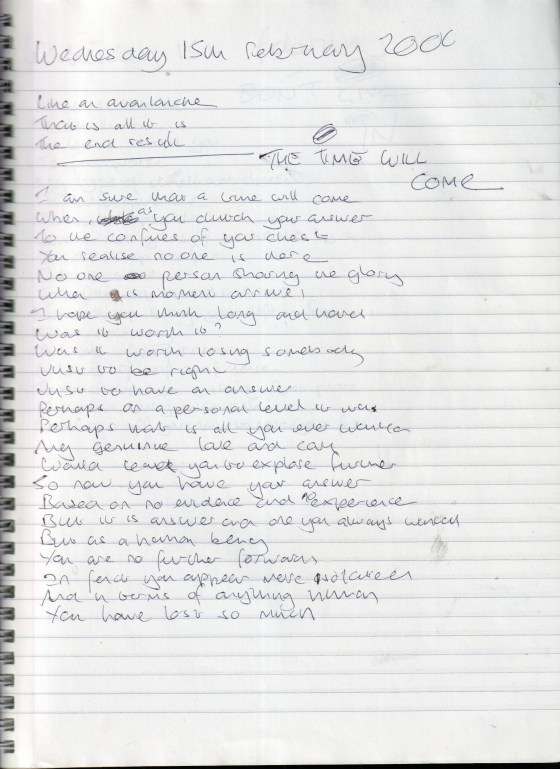 Wednesday 15th February 200
Like an avalanche
That is all it is
The end result
THE TIME WILL
COME
I am sure that a time will come
When as you clutch your answer
To the confines of your chest
You realise no one is there
No one person sharing the glory
When is moment arrives
I hope you think long and hard
Was it worth it?
Was it worth losing somebody
Just to be right
Just to have an answer
Perhaps on a personal level it was
Perhaps that is all you ever wanted
My genuine love and care
Would you to explore further
So now you have your answer
Based on no evidence and no experience
But it is answer and one you always wanted
But as a human being
You are no further forward
In fact you appear more isolated
And in terms of anything human
You have lost so much